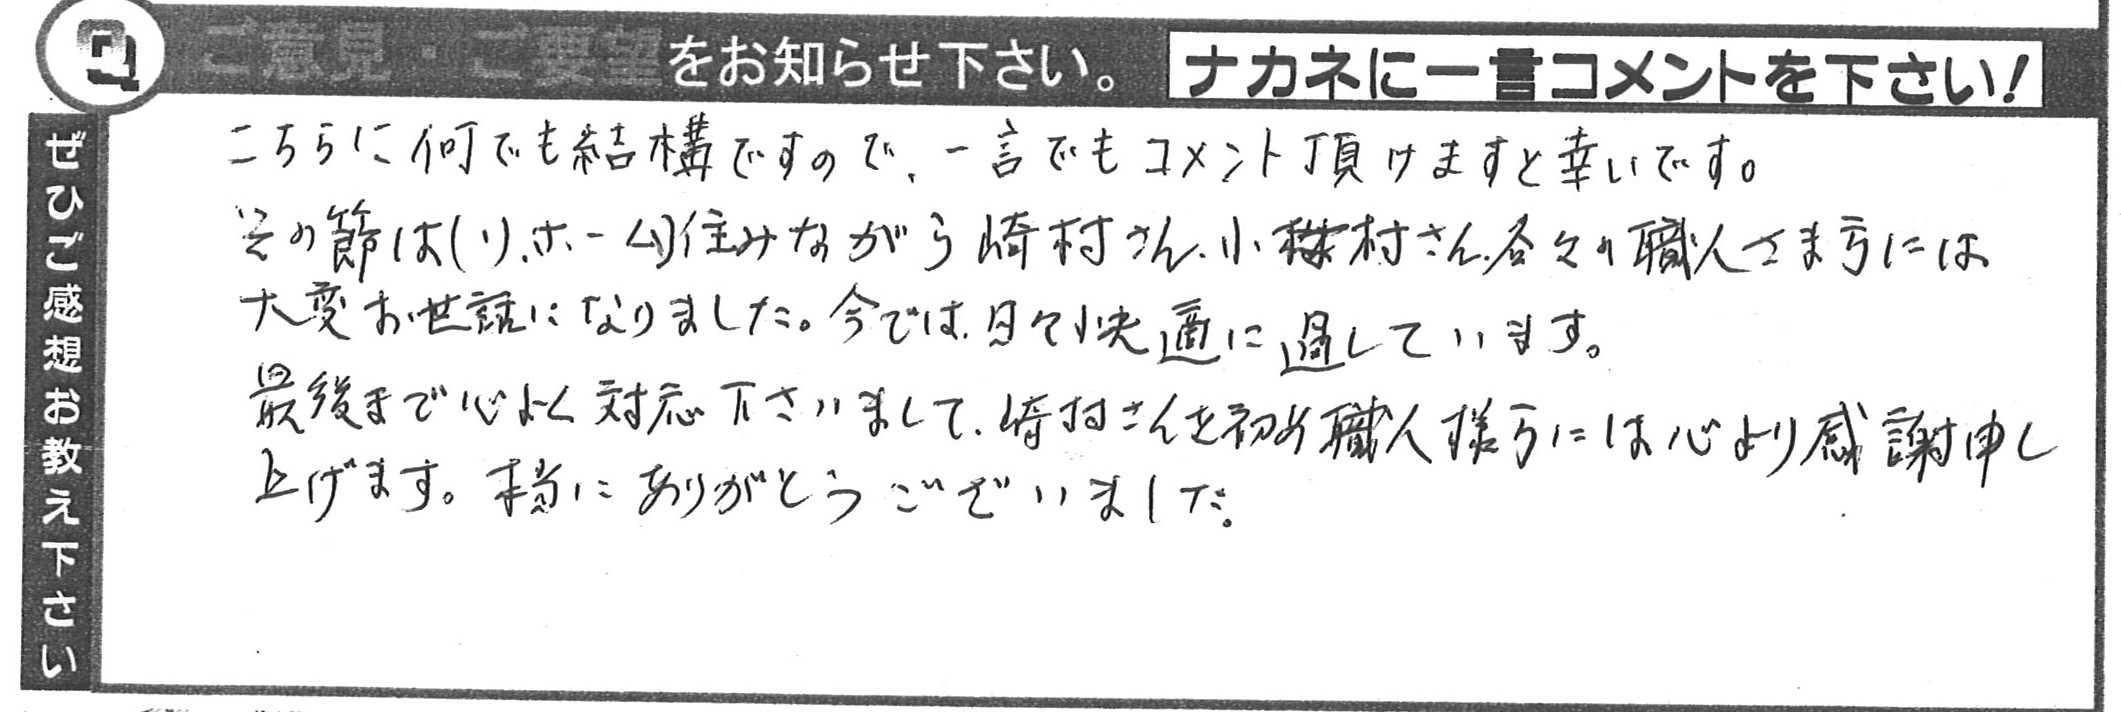 Q ご意見・ご要望をお知らせ下さい。 ナカネに一言コメントを下さい!
ぜひご感想お教え下さい
こちらに何でも結構ですので、一言でもコメント頂けますと幸いです。
その節は(リ.ホーム)住みながら崎村さん、小村さん、各々の職人さま方には
大変お世話になりました。今では、日々快適に過しています。
最後まで心よく対応下さいまして、崎村さんを初め職人様方には心より感謝申し
上げます。本当にありがとうございました。